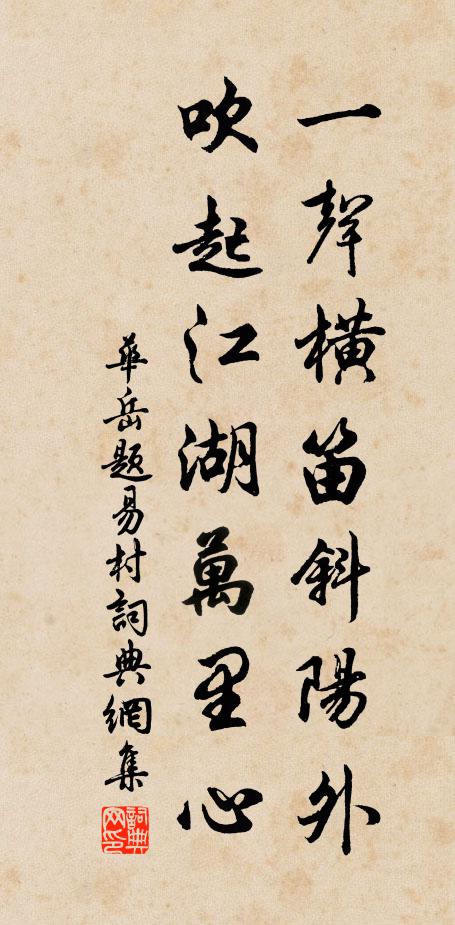 一聲橫笛斜陽外
吹起江湖萬里心
華岳題易村詞典網集
詞典網印